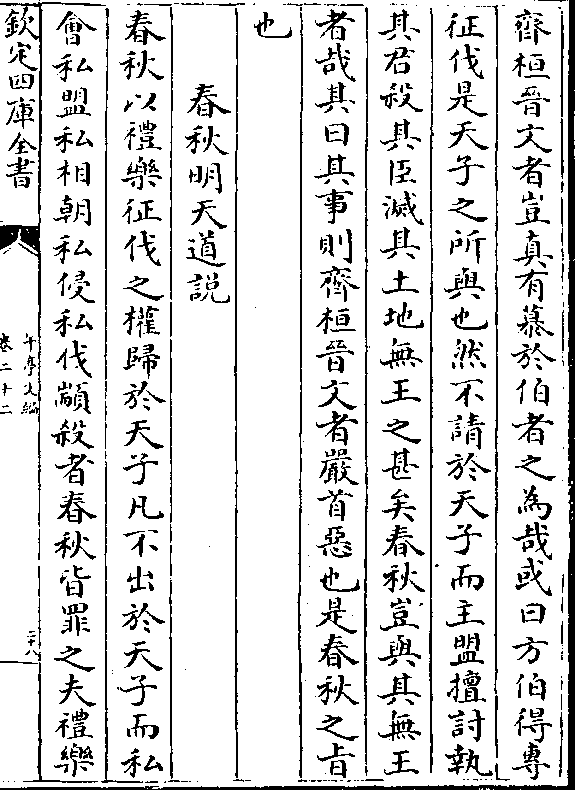 齊桓晉文者豈真有慕於伯者之為哉或曰方伯得專
征伐是天子之所與也然不請於天子而主盟擅討執
其君殺其臣滅其土地無王之甚矣春秋豈與其無王
者哉其曰其事則齊桓晉文者嚴首惡也是春秋之旨
也
春秋明天道説
春秋以禮樂征伐之權歸於天子凡不出於天子而私
會私盟私相朝私侵私伐顓殺者春秋皆罪之夫禮樂
欽定四庫全書
午亭文編
卷二十二
二十八